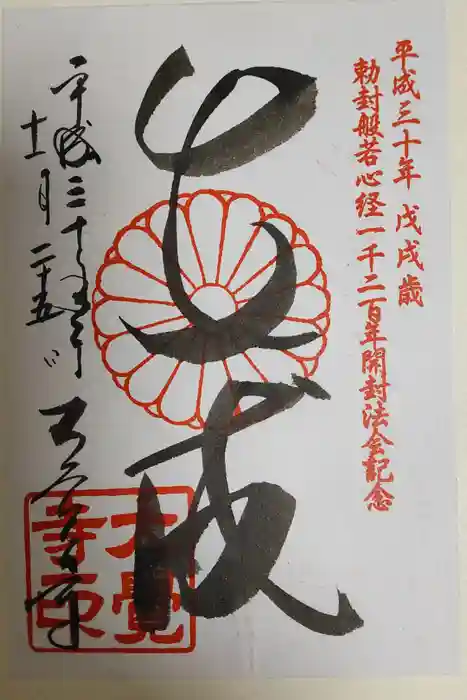 平成三十年 戊戌歳
勅封般若心経一千二百年開封法会記念
平成三十年
十一月二十五日
大覚寺
大覺
寺印